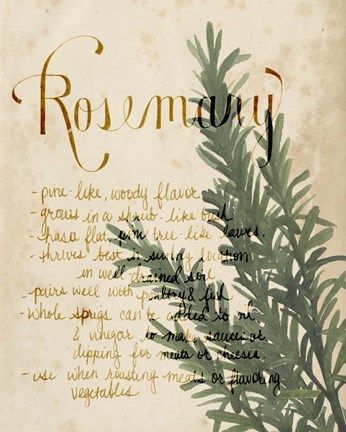 Rosemary
- pine-like, woody flavor
- grows in a shrub-like bush
- has a flat, pine tree-like leaves.
- thrives best in sunny location
in well drained soil
- pairs well with poultry & fish
- whole sprigs can be added to oil
& vinegar to make sauces or
dipping for meats or cheeses.
- use when roasting meats or flavoring
vegetables